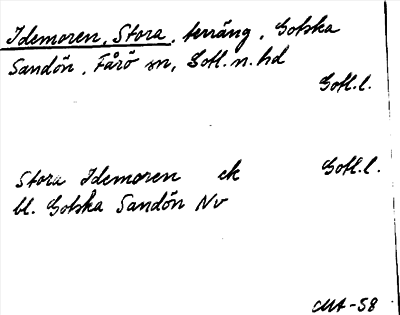 Idemoren, Stora, terräng, Gotska
Sandön, Fårö sn, Gotl. n. hd
Gotl. l.
Stora Idemoren ek Gotl. l.
bl. Gotska Sandön Nv
CMA-58